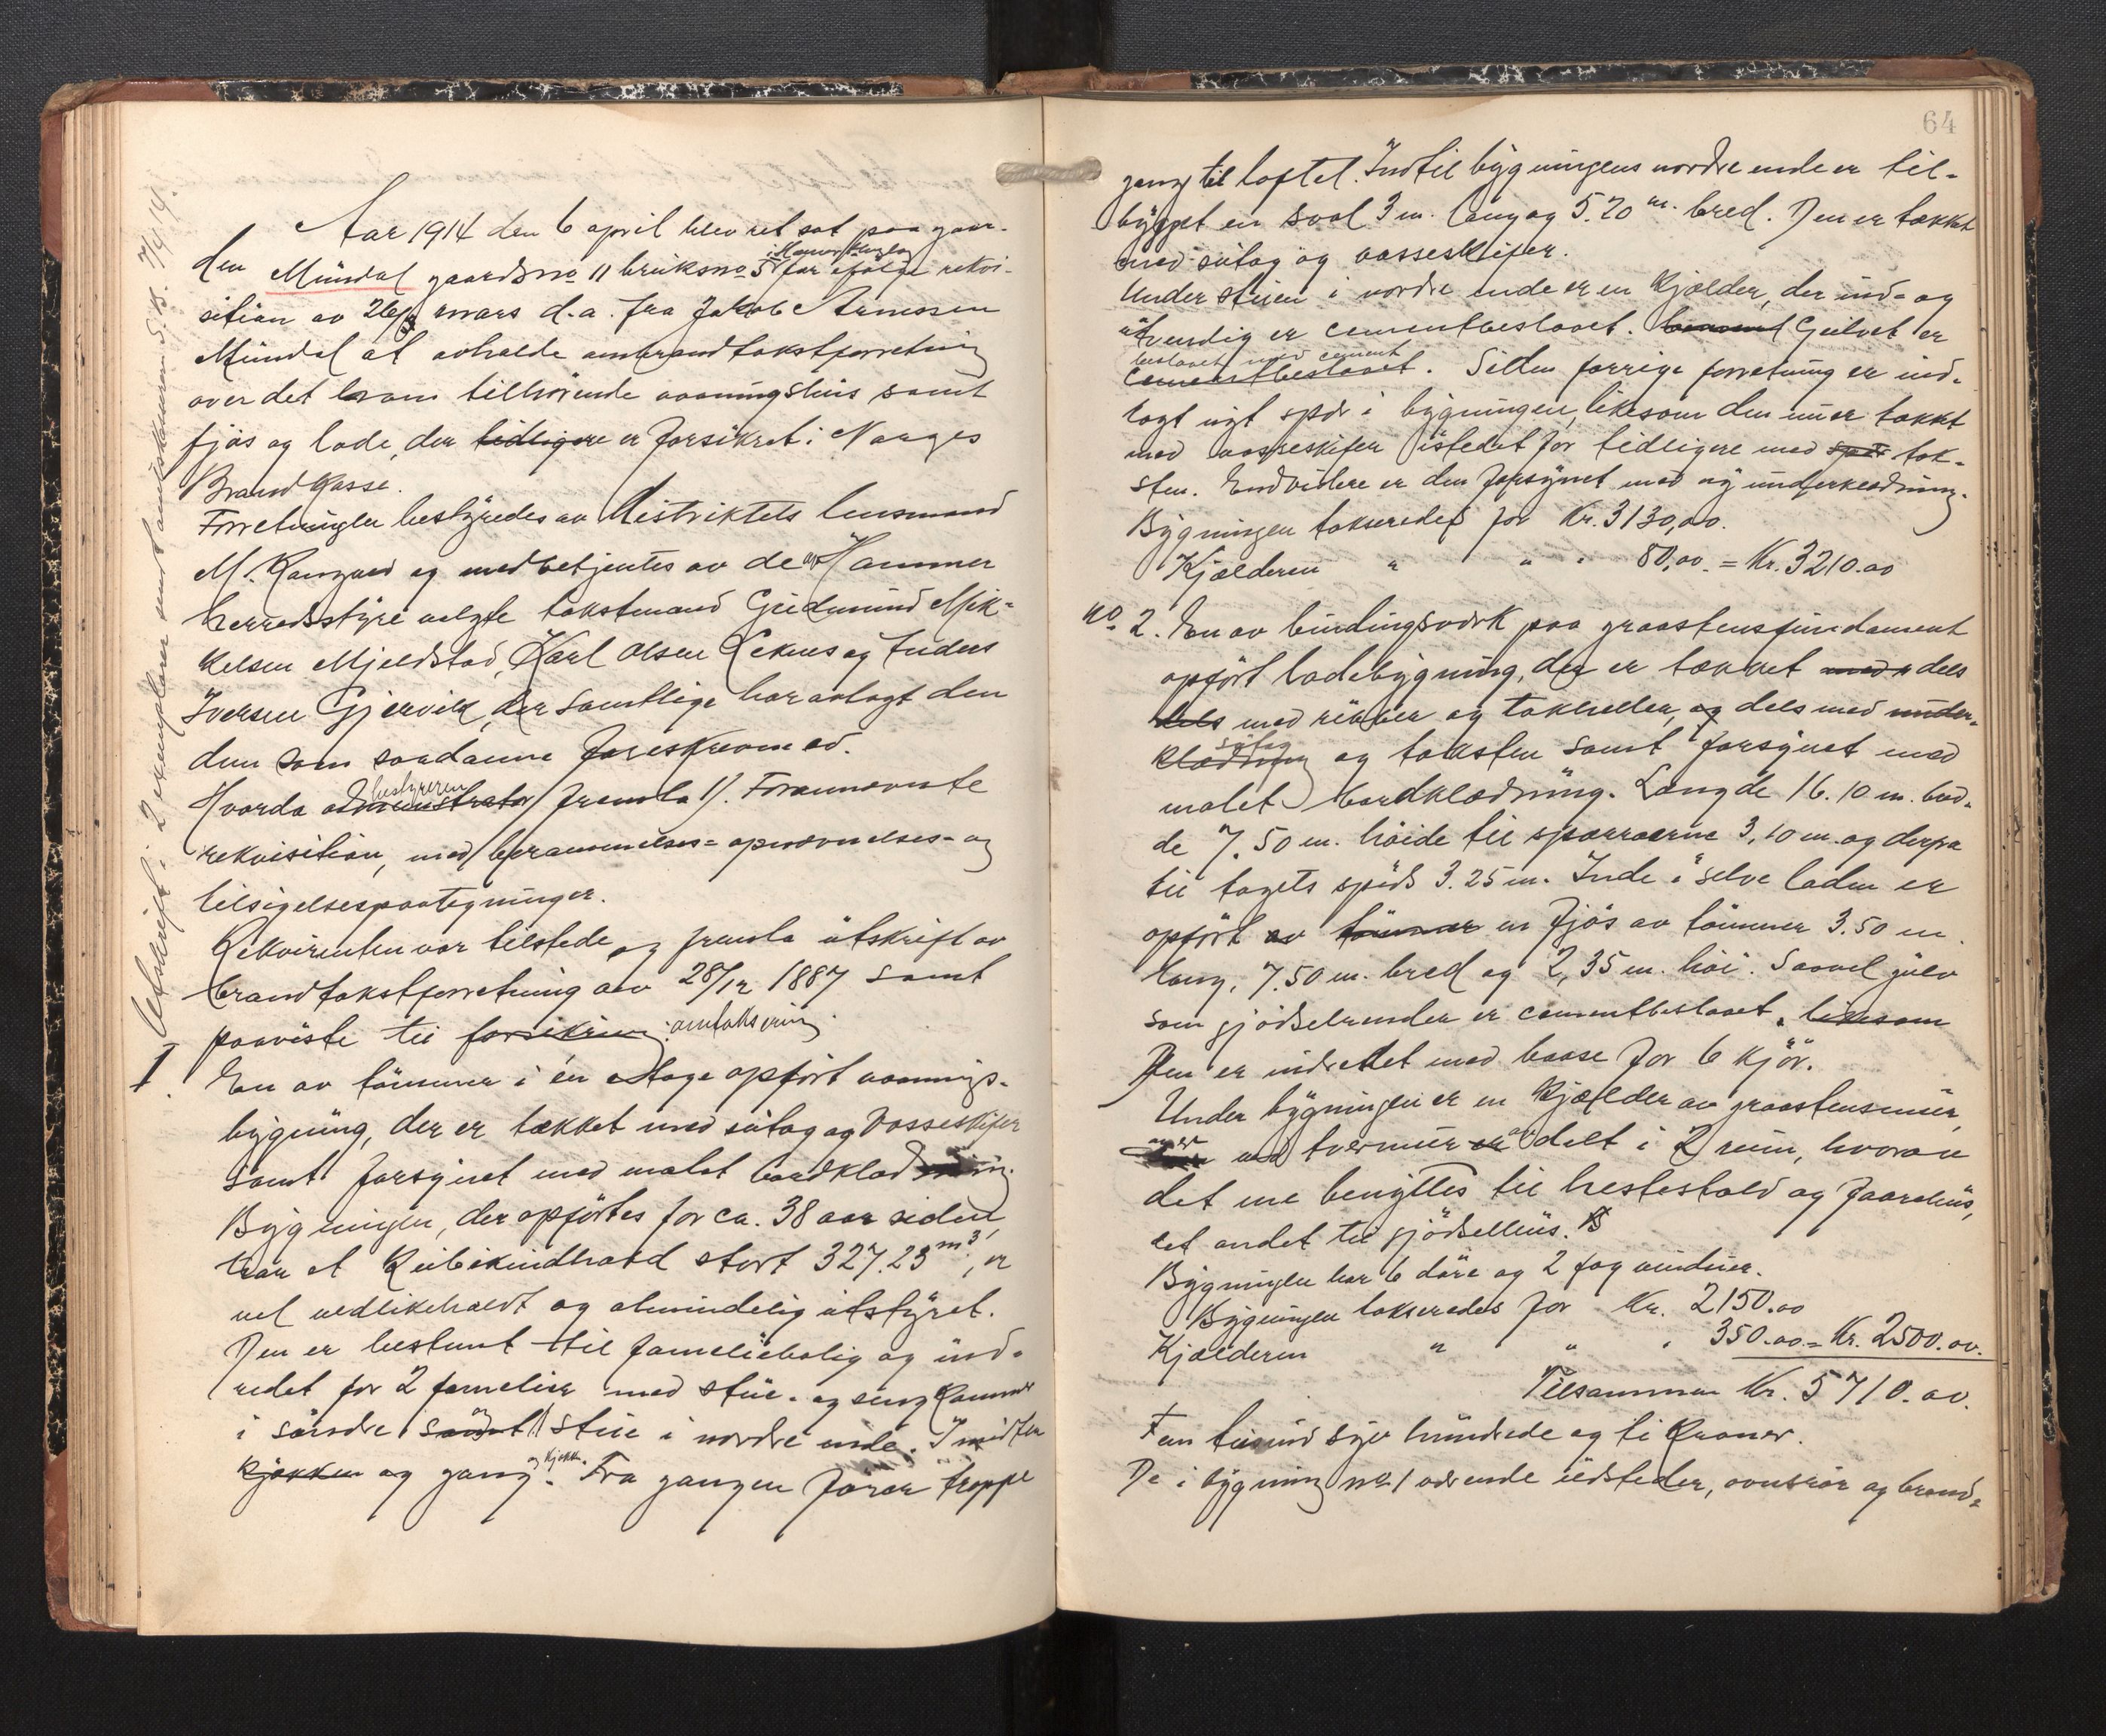 Aar 1914 den 6 april blev ret sat paa gaar-
i Hammer thinglag
den Mundal gaardsno 11 bruksno 5 for ifølge rekvi-
sition av 26/3 mars d.a. fra Jakob Arnessen
Mundal at avholde ombrandtakstforretning
over det ham tilhörende vaaningshus samt
fjös og lade, der tidligere er forsikret i Norges
Brandkasse.
Forretningen bestyredes av distriktets lensmand
M. Kongaas og medbetjentes av de av Hammer
herredsstyre valgte takstmænd Gudmund Mik-
kelsen Mjeldstad, Karl Olsen Leknes og Anders
Iversen Gjervik, der samtlige har avlagt den
dem som saadanne foreskrevne ed.
bestyreren
Hvorda administrator fremla 1). Forannævnte
rekvisition, med berammelses- opnævnelses- og
tilsigelsespaategninger.
Rekvirenten var tilstede og fremla utskrift av
brandtakstforretning av 28/12 1887 samt
paaviste til forsikring: omtaksering.
I. En av tömmer i én etage opfört vaanings-
bygning, der er tækket med sutag og vosseskifer
samt forsynet med malet bordklædning.
Bygningen, der opförtes for ca. 38 aar siden,
har et Kubikindhold stort 327.23 m3, er
vel vedlikeholdt og almindelig utstyret.
Den er bestemt til familiebolig og ind-
redet for 2 familier med stue- og sengkammer
i söndre samt og stue i nordre ende. I midten
kjøkken og gang og kjøkk. Fra gangen förer trappe
Utskrift i 2 exemplarer sendt amtskassereren d. 7/4 14.
64
gang til loftet. Indtil bygningens nordre ende er til-
bygget en sval 3 m. lang og 5.20 m. bred. Den er tækket
med sutag og vosseskifer.
Under stuen i nordre ende er en kjælder, der ind- og
utvendig er cementbeslaaet. Gulvet er
beslaaet med cement
cementbeslaaet. Siden forrige forretning er ind-
lagt nyt spør i bygningen, likesom den nu er tækket
med vosseskifer istedet for tidligere med tak-
sten. Endvidere er den forsynet med ny underklædning.
Bygningen takseredes for Kr. 3130,00.
Kjælderen " " " 80,00 = Kr. 3210.00
No 2. En av bindingsverk paa graastensfundament
opfört ladebygning, der er tækket med dels
dels med ribber og takheller, og dels med under-
sutag
klædning og taksten samt forsynet med
malet bordklædning. Længde 16.10 m. bred-
de 7.50 m. höide til sparrerne 3,10 m. og derfra
til tagets spids 3.25 m. Inde i selve laden er
opfört av tömmer en fjös av tömmer 3.50 m.
lang, 7.50 m. bred og 2,35 m. höi. Saavel gulv
som gjödselrender er cementbeslaaet, likesom
Den er indrettet med baase for 6 kjör.
Under bygningen er en kjælder av graastensmur,
og er ved tvermur er avdelt i 2 rum, hvorav
det ene benyttes til hestestald og faarehus,
det andet til gjödselhus.
Bygningen har 6 döre og 2 fag vinduer.
Bygningen takseredes for Kr. 2150.00
Kjælderen " " " 350.00 = Kr. 2500.00.
Tilsammen Kr. 5710.00.
Fem tusind syv hundrede og ti Kroner.
De i bygning no. 1 værende ildsteder, ovnsrör og brand-